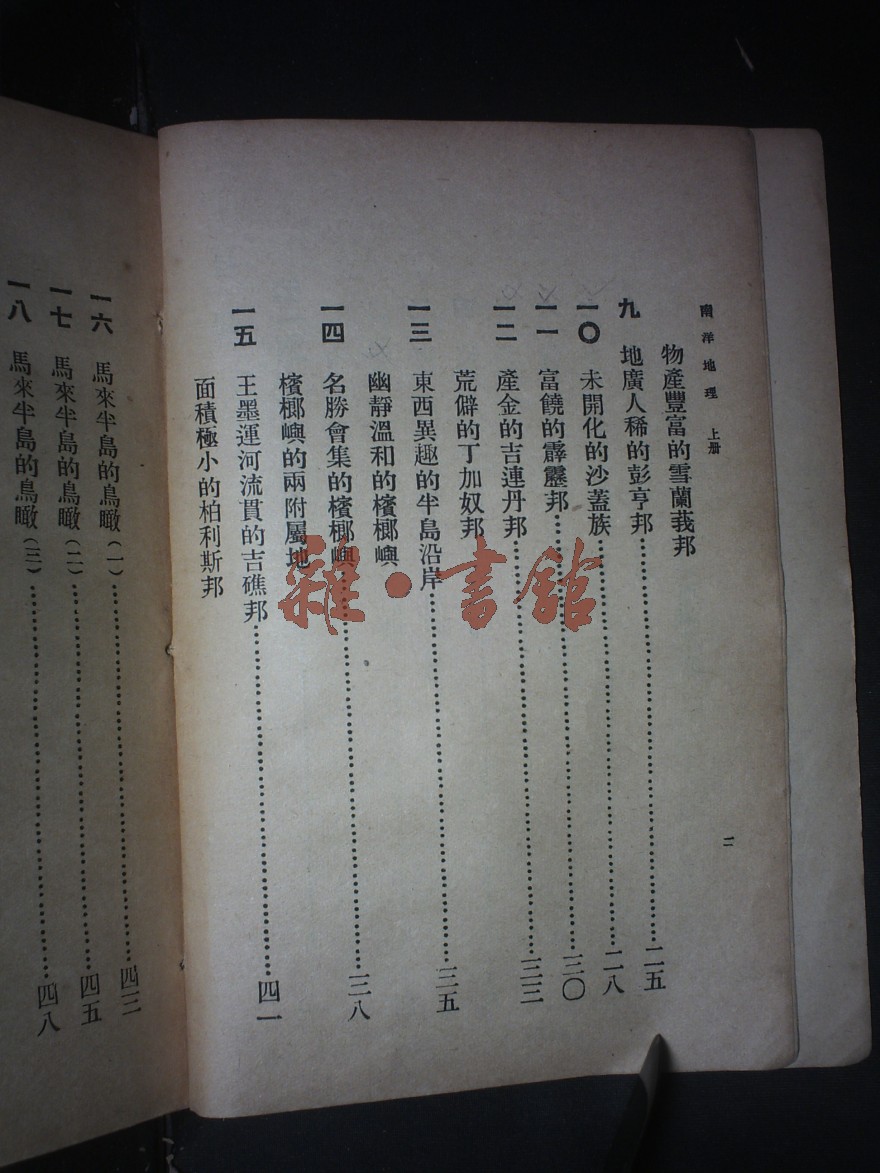 南洋地理 上册
物產豐富的雪蘭莪邦
九 地廣人稀的彭亨邦……二五
一〇 未開化的沙蓋族……二八
一一 富饒的霹靂邦……三〇
一二 產金的吉連丹邦……三三
荒僻的丁加奴邦
一三 東西異趣的半島沿岸……三五
幽靜溫和的檳榔嶼
一四 名勝會集的檳榔嶼……三八
檳榔嶼的兩附屬地
一五 王墨運河流貫的吉礁邦……四一
面積極小的柏利斯邦
二
一六 馬來半島的鳥瞰(一)……四三
一七 馬來半島的鳥瞰(二)……四五
一八 馬來半島的鳥瞰(三)……四八
雜·書館